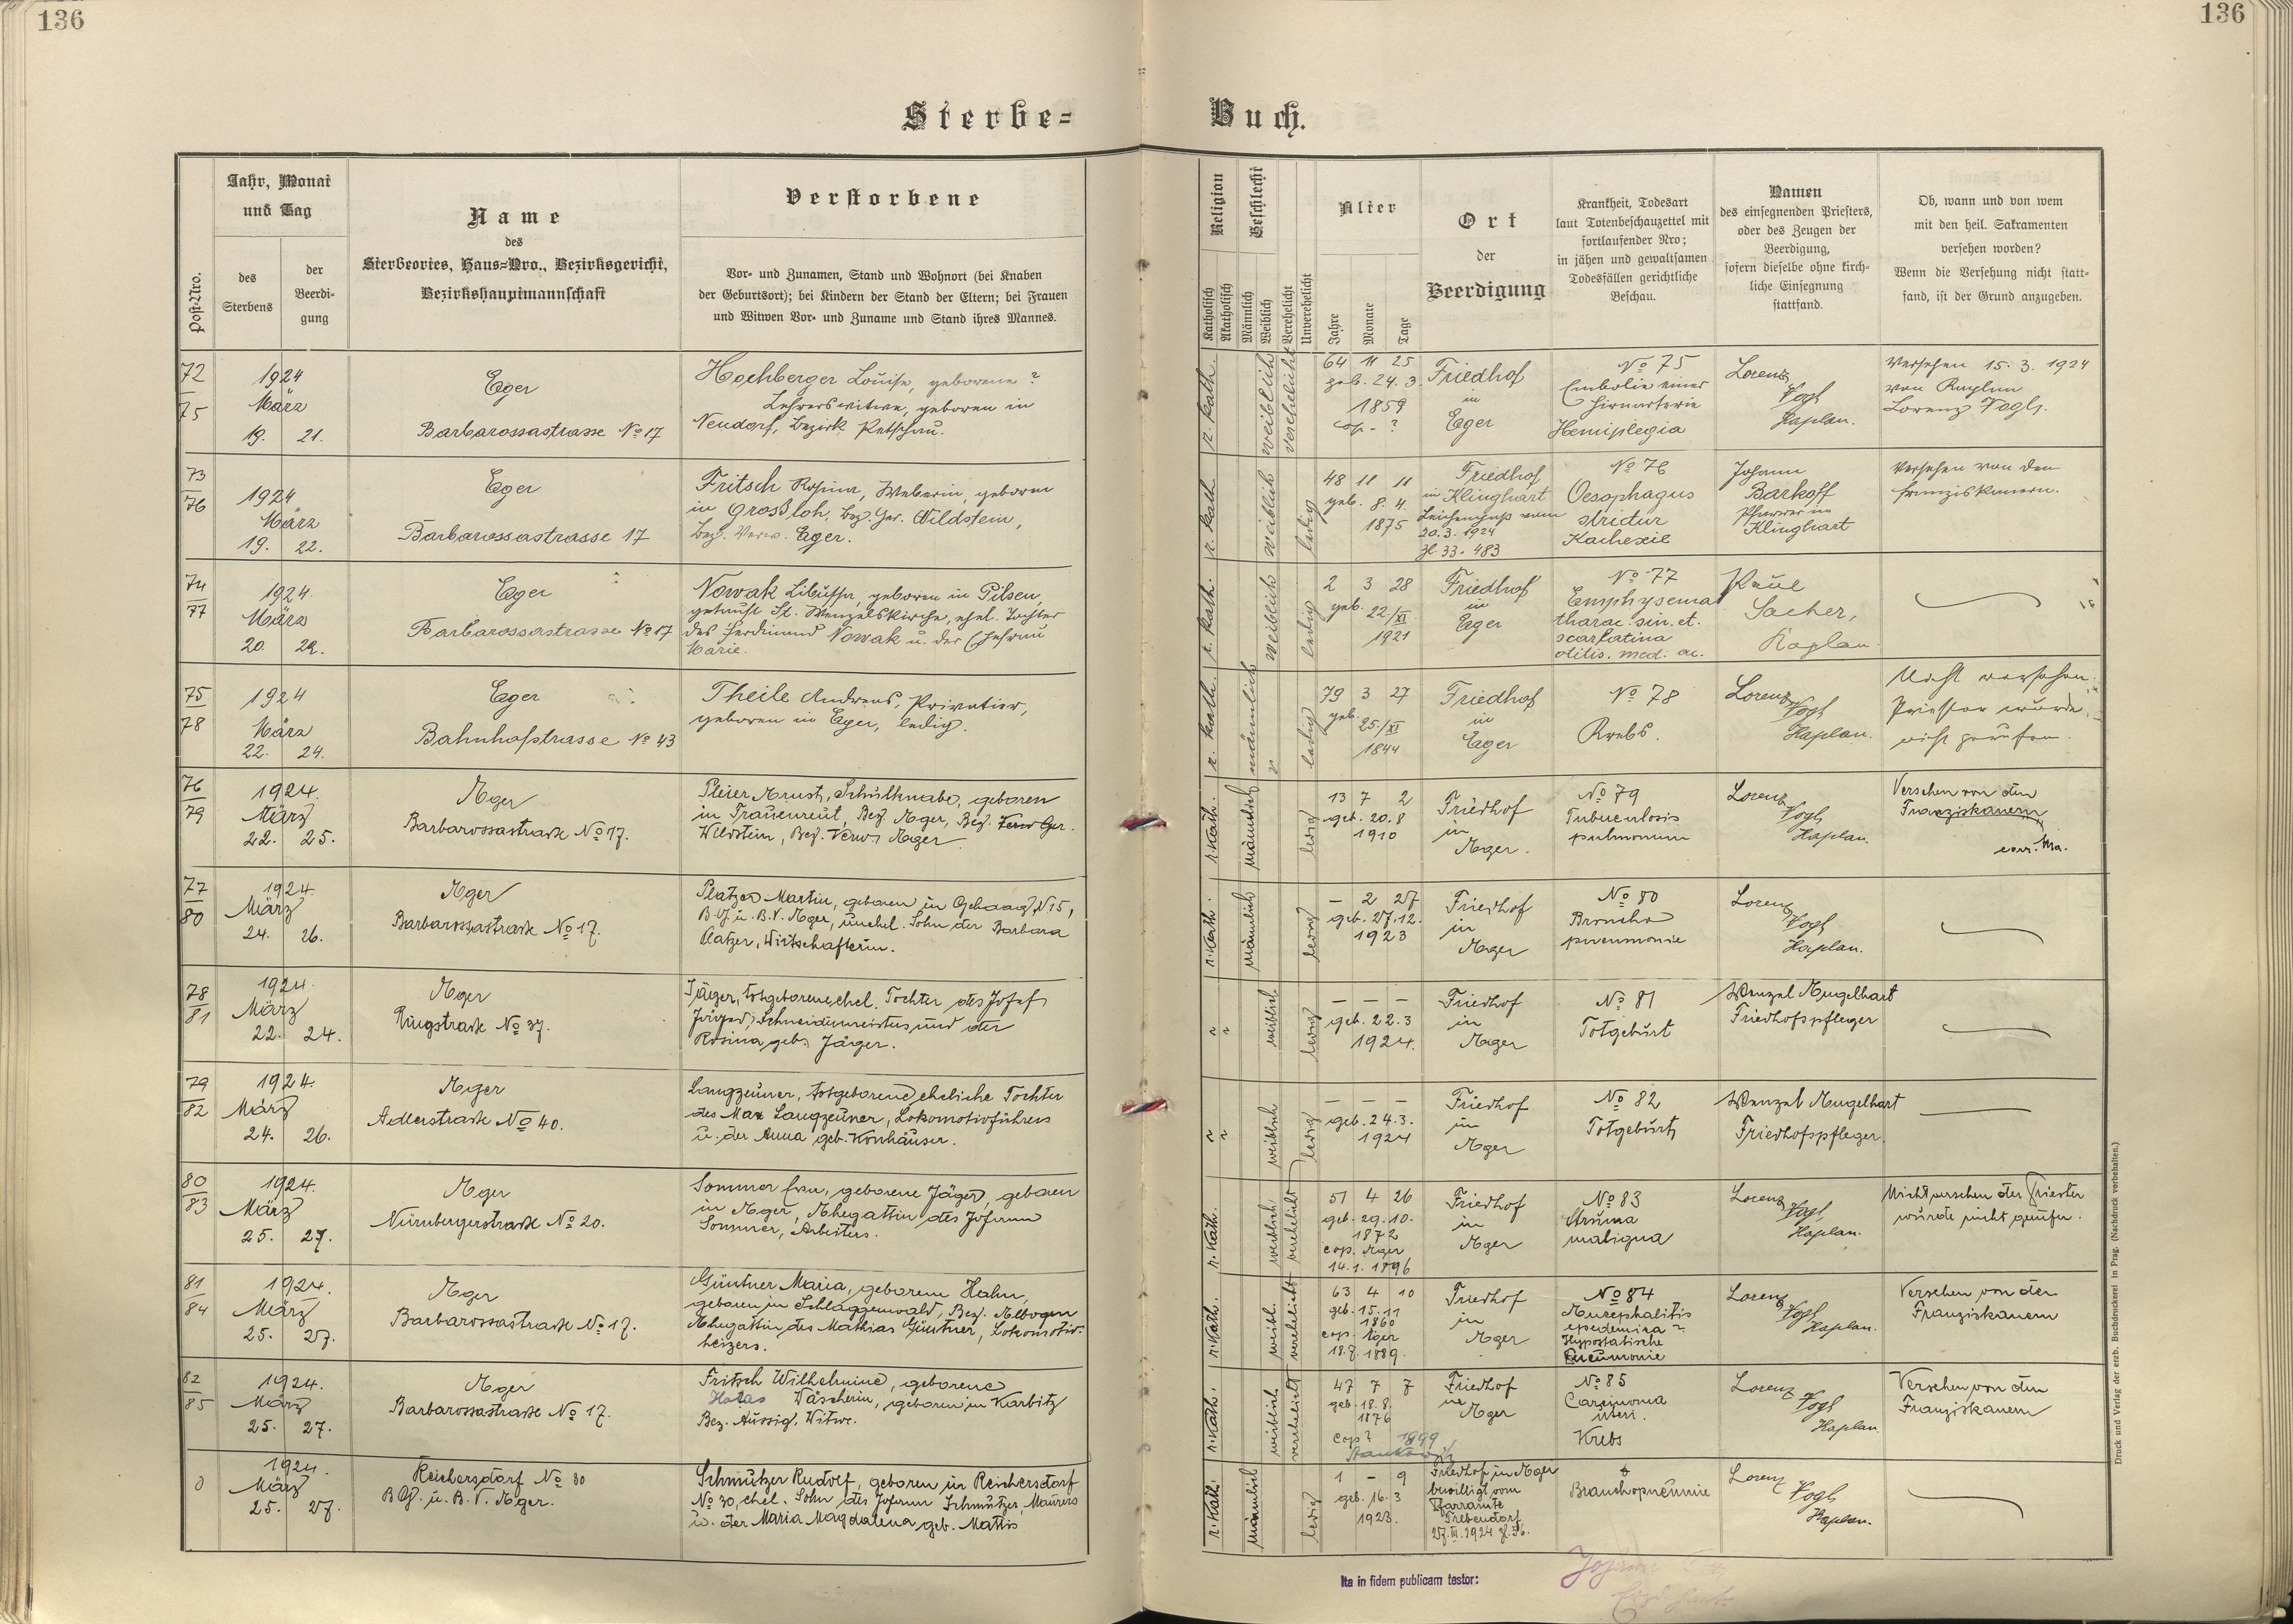 136
136
Sterbe-
Buch.
Post-Nro.
Jahr, Monat
und Tag
des
Sterbens
der
Beerdi-
gung
Name
des
Sterbeortes, Haus-Nro., Bezirksgericht,
Bezirkshauptmannschaft
Verstorbene
Vor- und Zunamen, Stand und Wohnort (bei Knaben
der Geburtsort); bei Kindern der Stand der Eltern; bei Frauen
und Witwen Vor- und Zuname und Stand ihres Mannes.
Religion
Katholisch
Akatholisch
Geschlecht
Männlich
Weiblich
Verehelicht
Unverehelicht
Alter
Jahre
Monate
Tage
Ort
der
Beerdigung
Krankheit, Todesart
laut Totenbeschauzettel mit
fortlaufender Nro;
in jähen und gewaltsamen
Todesfällen gerichtliche
Beschau.
Namen
des einsegnenden Priesters,
oder des Zeugen der
Beerdigung,
sofern dieselbe ohne kirch-
liche Einsegnung
stattfand.
Ob, wann und von wem
mit den heil. Sakramenten
versehen worden?
Wenn die Versehung nicht statt-
fand, ist der Grund anzugeben.
72
75
1924
März
19. 21.
Eger
Barbarossastrasse No 17
Hochberger Louise, geborene ?
Lehrerswitwe, geboren in
Neudorf, Bezirk Petschau.
r. kath.
weiblich
verehelicht
64 11 25
geb. 24. 3.
1859
cop. - ?
Friedhof
in
Eger
No 75
Embolie einer
Hirnarterie
Hemiplegia
Lorenz
Vogl
Kaplan.
Versehen 15. 3. 1924
von Kaplan
Lorenz Vogl.
73
76
1924
März
19. 22.
Eger
Barbarossastrasse 17
Fritsch Rosina, Weberin, geboren
in Grossloh, Bez. Ger. Wildstein,
Bez. Verw. Eger.
r. kath.
weiblich
ledig
48 11 11
geb. 8. 4.
1875
Friedhof
in Klinghart
Leichenpass vom
20. 3. 1924
Zl. 33. 483
No 76
Oesophagus
strictur
Kachexie
Johann
Barkoff
Pfarrer in
Klinghart
Versehen von den
Franziskanern.
74
77
1924.
März
20. 22.
Eger
Barbarossastrasse No 17
Nowak Libussa, geboren in Pilsen,
getauft St. Wenzelskirche, ehel. Tochter
des Ferdinand Nowak u. der Ehefrau
Marie.
r. kath.
weiblich
ledig
2 3 28
geb. 22/XI
1921
Friedhof
in
Eger
No 77
Emphysema
thorac. sin. et.
scarlatina
otitis. med. ac.
Paul
Sacher,
Kaplan
75
78
1924
März
22. 24.
Eger
Bahnhofstrasse No 43
Theile Andreas, Privatier,
geboren in Eger, ledig.
r. kath.
männlich
ledig
79 3 27
geb. 25/XI
1844
Friedhof
in
Eger
No 78
Krebs.
Lorenz
Vogl
Kaplan.
Nicht versehen.
Priester wurde
nicht gerufen.
76
79
1924.
März
22. 25.
Eger
Barbarossastraße No 17.
Pleier Ernst, Schulknabe, geboren
in Frauenreut, Bez. Eger, Bez. Verw Ger.
Wildstein, Bez. Verw. Eger
r. Kath.
männlich
ledig
13 7 2
geb. 20. 8
1910
Friedhof
in
Eger.
No 79
Tuberculosis
pulmonum
Lorenz
Vogl
Kaplan.
Versehen von den
Franziskanern
77
80
1924.
März
24. 26.
Eger
Barbarossastraße No 17.
Platzer Martin, geboren in Gehaag N 15,
B. G. u. B. V. Eger, unehel. Sohn der Barbara
Platzer, Wirtschafterin.
r. Kath.
männlich
ledig
- 2 27
geb. 27. 12.
1923
Friedhof
in
Eger
No 80
Broncho
pneumonie
Lorenz
Vogl
Kaplan.
78
81
1924.
März
22. 24.
Eger
Ringstraße No 37.
Jäger, totgeborene ehel. Tochter des Josef
Jäger, Schneidermeisters und der
Rosina geb. Jäger.
weiblich
ledig
- - -
geb. 22. 3
1924.
Friedhof
in
Eger
No 81
Totgeburt
Wenzel Engelhart
Friedhofspfleger
79
82
1924.
März
24. 26.
Eger
Adlerstraße No 40.
Langzeuner, totgeborene eheliche Tochter
des Max Langzeuner, Lokomotivführers
u. der Anna geb. Kornhäuser.
weiblich
ledig
- - -
geb. 24. 3.
1924
Friedhof
in
Eger
No 82
Totgeburt
Wenzel Engelhart
Friedhofspfleger.
80
83
1924.
März
25. 27.
Eger
Nürnbergerstraße No 20.
Sommer Eva, geborene Jäger, geboren
in Eger, Ehegattin des Johann
Sommer, Arbeiters.
r. Kath.
weiblich
verehelicht
51 4 26
geb. 29. 10.
1872
cop. Eger
14. 1. 1896
Friedhof
in
Eger
No 83
Struma
maligna
Lorenz
Vogl
Kaplan.
Nicht versehen der Priester
wurde nicht gerufen.
81
84
1924.
März
25. 27.
Eger
Barbarossastraße No 17.
Güntner Maria, geborene Hahn,
geboren in Schlaggenwald, Bez. Elbogen
Ehegattin des Mathias Güntner, Lokomotiv-
heizers.
r. Kath.
weibl.
verehelicht
63 4 10
geb. 15. 11
1860
cop. Eger
18. 8. 1889.
Friedhof
in
Eger
No 84
Encephalitis
epidemica
Hypostatische
Pneumonie
Lorenz
Vogl
Kaplan.
Versehen von den
Franziskanern
82
85
1924.
März
25. 27.
Eger
Barbarossastraße No 17.
Fritsch Wilhelmine, geborene
Holas Wäscherin, geboren in Karbitz
Bez. Aussig, Witwe.
r. Kath.
weiblich
verehelicht
47 7 7
geb. 18. 8.
1876
Cop? 1899
Friedhof
in
Eger
No 85
Carcinoma
uteri.
Krebs
Lorenz
Vogl
Kaplan
Versehen von den
Franziskanern
0
1924.
März
25. 27.
Reichersdorf No 30
B. G. u. B. V. Eger.
Schmutzer Rudolf, geboren in Reichersdorf
No 30, ehel. Sohn des Johann Schmutzer, Maurers
u. der Maria Magdalena geb. Mattis
r. Kath.
männlich
ledig
1 - 9
geb. 16. 3
1923.
Friedhof in Eger
bewilligt vom
Pfarramte
Trebendorf
27. III. 1924
Bronchopneumonie
Lorenz
Vogl
Kaplan.
Ita in fidem publicam testor:
Druck und Verlag der erzb. Buchdruckerei in Prag. (Nachdruck vorbehalten.)